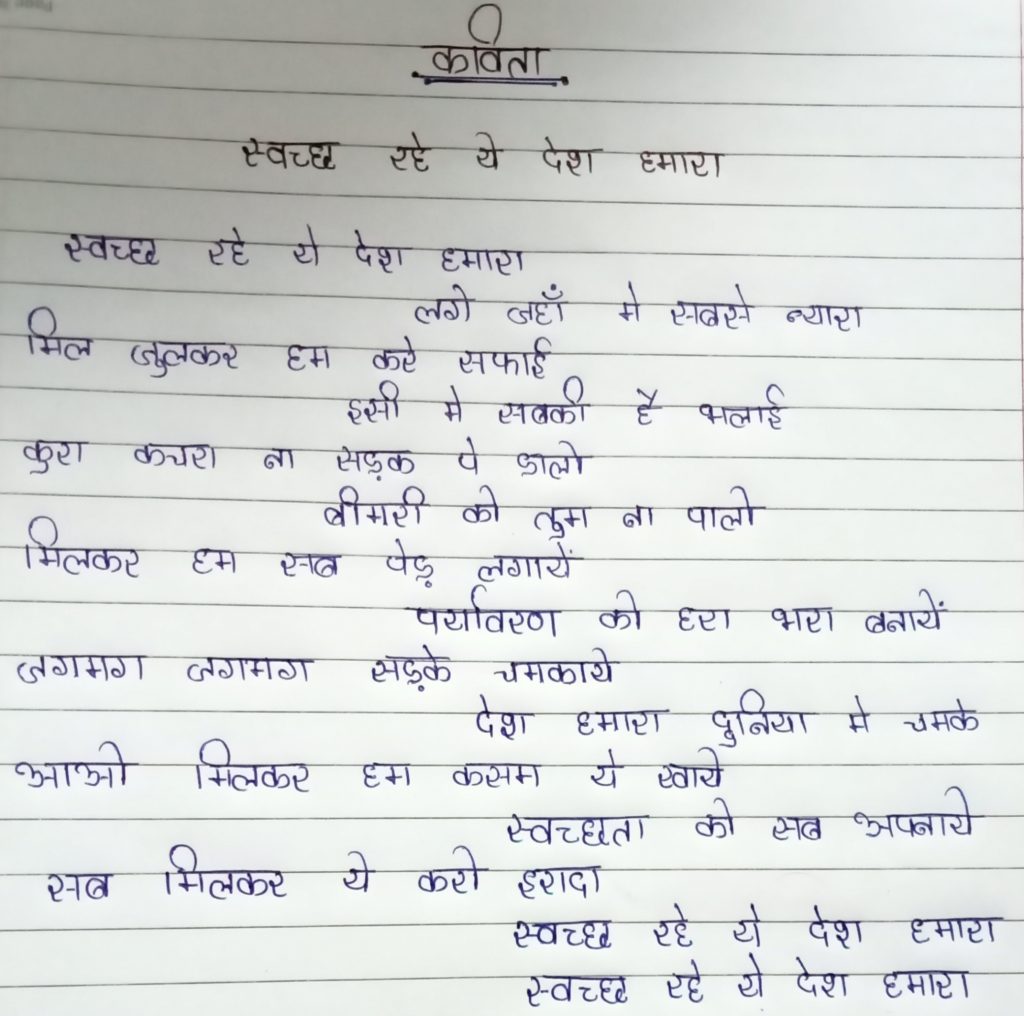 कविता
स्वच्छ रहे ये देश हमारा
स्वच्छ रहे ये देश हमारा
लगे जहाँ मे सबसे न्यारा
मिल जुलकर हम करे सफाई
इसी मे सबकी है भलाई
कुरा कचरा ना सड़क पे डालो
बीमरी को तुम ना पालो
मिलकर हम सब पेड़ लगायें
पर्यावरण को हरा भरा बनायें
जगमग जगमग सड़के चमकाये
देश हमारा दुनिया मे चमके
आओ मिलकर हम कसम ये खाये
स्वच्छता को सब अपनाये
सब मिलकर ये करो इरादा
स्वच्छ रहे ये देश हमारा
स्वच्छ रहे ये देश हमारा